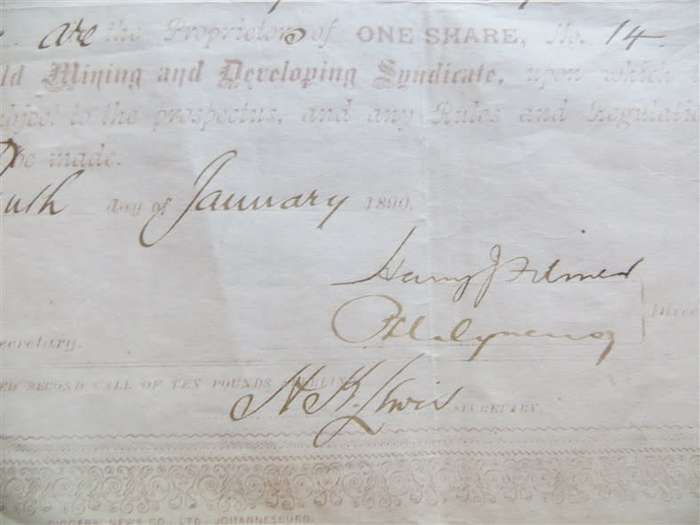 are the Proprietors of ONE SHARE, No. 14
ld Mining and Developing Syndicate, upon which
bject to the prospectus, and any Rules and Regulati
be made.
day of January 1890.
Harry J Filmer
Secretary.
RECORD CALL OF TEN POUNDS
H K Lewis SECRETARY.
NEWS CO. LTD JOHANNESBURG.